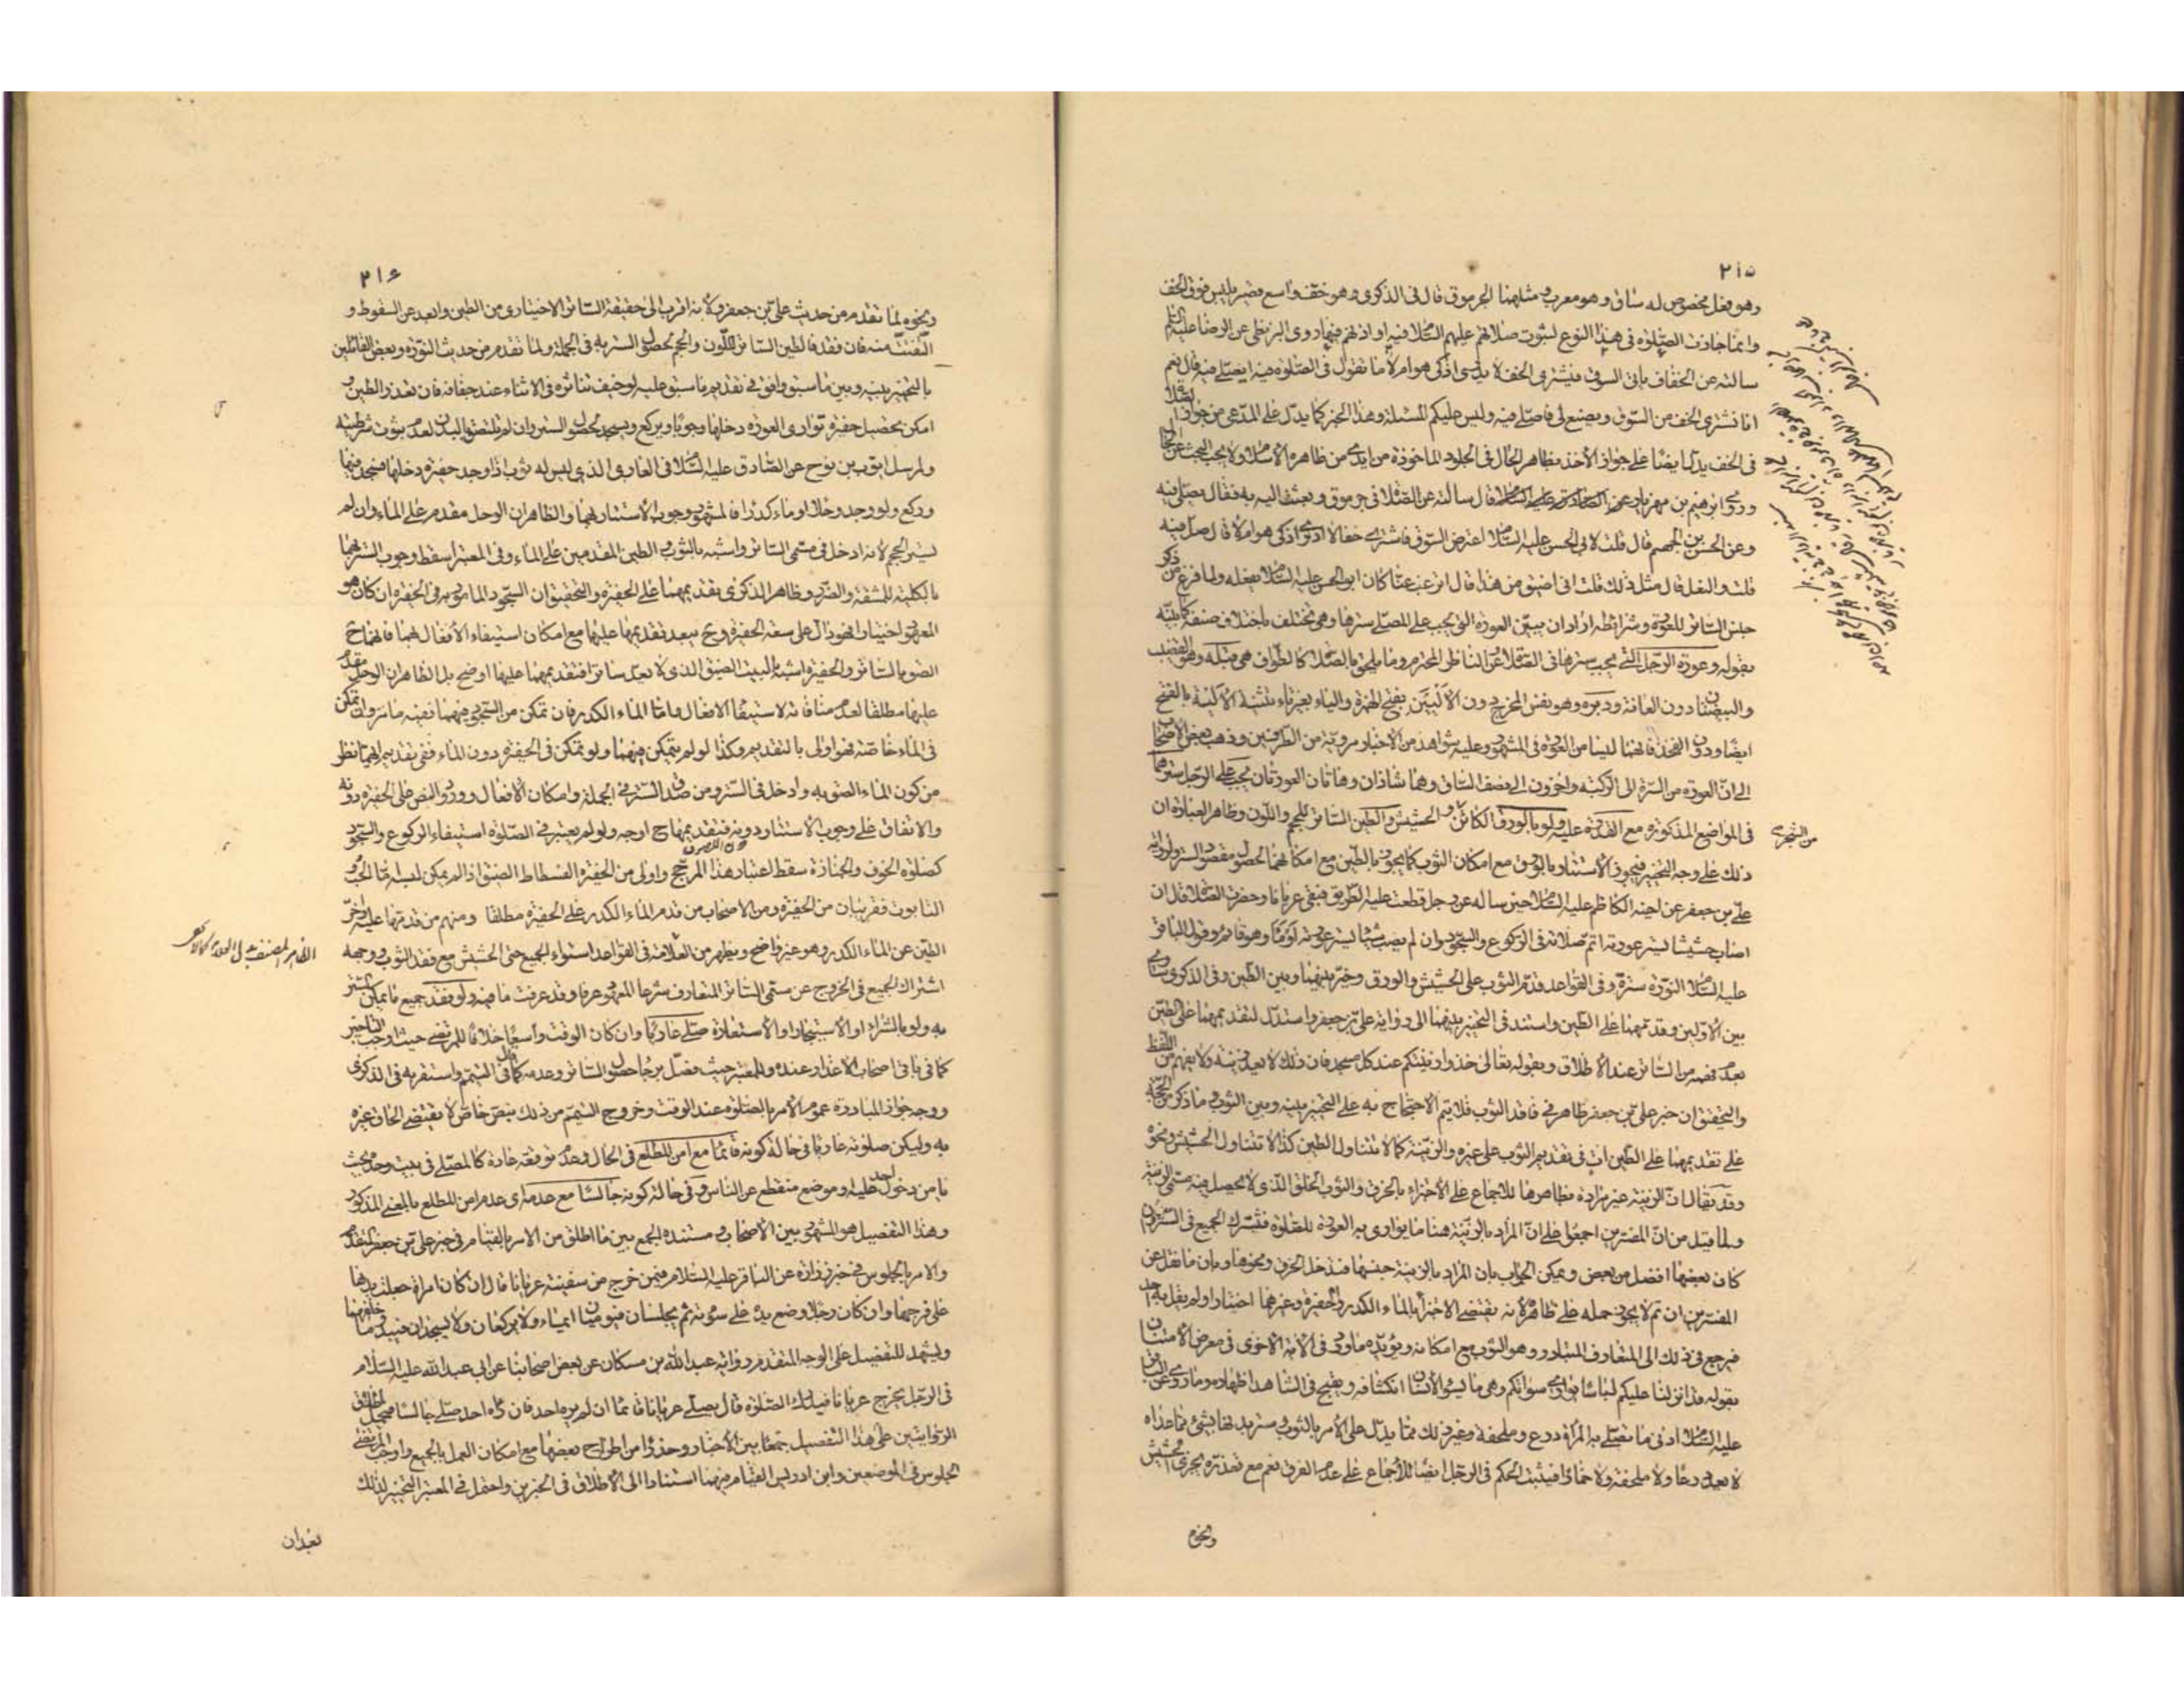 ٢١٥
وهو نعل مخصوص له ساق وهو معرب ومثلهما الجرموق قال في الذكرى وهو خف واسع قصير يلبس فوق الخف
وانما جازت الصلوة في هذا النوع لثبوت صلاتهم عليهم السلام فيه او اذنهم فيها روى البزنطى عن الرضا عليه
سالته عن الخفاف ياتى السوق فيشترى الخف لا يدرى اذكى هو ام لا ما تقول في الصلوة فيه ايصلى فيه قال نعم
انا نشترى الخف من السوق ويصنع لى فاصلى فيه وليس عليكم المسئلة وهذا الخبر كما يدل على المدعى من جواز
في الخف يدل ايضا على جواز الاخذ بظاهر الحال في الجلود الماخوذة من ايدى من ظاهره الاسلام ولا يجب البحث عن
وروى ابرهيم بن مهزيار قال سالته عن الصلاة في جرموق وبعثت اليه به فقال يصلى فيه
وعن الحسن بن الجهم قال قلت لابى الحسن عليه السلام اعترض السوق فاشترى خفا لا ادرى اذكى هو ام لا قال صل فيه
قلت والنعل قال مثل ذلك قلت انى اضيق من هذا قال اترغب عنا كان ابو الحسن عليه السلام يفعله ولما فرغ من ذكر
جنس الساتر للعورة وشرائطه اراد ان يبين العورة التى يجب على المصلى سترها وهى تختلف باختلاف صنفه
بقوله وعورة الرجل التى يجب سترها في الصلاة عن الناظر المحترم وما يلحق بالصلاة كالطواف هي قبله وهو القضيب
والبيضتان دون العانة ودبره وهو نفس المخرج دون الأليين بفتح الهمزة والياء بغير تاء تثنية الالية بالفتح
ايضا ودون الفخذ فانهما ليسا من العورة في المشهور وعليه شواهد من الاخبار مروية من الطرفين وذهب بعض الاصحاب
الى ان العورة من السرة الى الركبة واخرون الى نصف الساق وهما شاذان وهاتان العورتان يجب على الرجل سترهما
في المواضع المذكورة مع القدرة عليه ولو بالورق الكائن والحشيش والطين الساتر للحجم واللون وظاهر العبارة ان
من الشجر
ذلك على وجه التخيير فيجوز الاستتار بالورق مع امكان الثوب كما يجوز بالطين مع امكانهما لحصول مقصود الستر ولرواية
على بن جعفر عن اخيه الكاظم عليه السلام حين ساله عن رجل قطعت عليه الطريق فبقى عريانا وحضرت الصلاة قال ان
اصاب حشيشا يستر عورته اتم صلاته في الركوع والسجود وان لم يصب شيئا يستر عورته اومأ وهو قائم وقول الباقر
عليه السلام النورة سترة وفي القواعد قدم الثوب على الحشيش والورق وخير بينهما وبين الطين وفي الذكرى ساوى
بين الاولين وقدمهما على الطين واستند في التخيير بينهما الى رواية على بن جعفر واستدل لتقديمهما على الطين
بعدم فهمه من الساتر عند الاطلاق وبقوله تعالى خذوا زينتكم عند كل مسجد فان ذلك لا يعد زينة ولا يفهم من اللفظ
والتحقيق ان خبر على بن جعفر ظاهر في فاقد الثوب فلا يتم الاحتجاج به على التخيير بينه وبين الثوب وما ذكر من الحجة
على تقديمهما على الطين ات في تقديم الثوب على غيره والزينة كما لا تتناول الطين كذا لا تتناول الحشيش ونحوه
وقد يقال ان الزينة غير مرادة بظاهرها للاجماع على الاجزاء بالخزف والثوب الخلق الذى لا يحصل فيه مسمى الزينة
ولما قيل من ان المفسرين اجمعوا على ان المراد بالزينة هنا ما يوارى به العورة للصلوة فيشترك الجميع في الستر وان
كان بعضها افضل من بعض ويمكن الجواب بان المراد بالزينة جنسها فيدخل الخزف ونحوها وبان ما نقل عن
المفسرين ان تم لا يجوز حمله على ظاهره لانه يقتضى الاجتزاء بالماء الكدر والحفيرة وغيرهما اختيارا ولم يقل به احد
فيرجع في ذلك الى المتعارف المتبادر وهو الثوب مع امكانه ويؤيده ما ورد في الاية الاخرى في معرض الامتنان
بقوله قد انزلنا عليكم لباسا يوارى سواتكم وهى ما يسوء الانسان انكشافه ويقبح في الشاهد اظهاره وما روى عن الباقر
عليه السلام ادنى ما تصلى به المرأة درع وملحفة وغير ذلك مما يدل على الامر بالثوب وستر بدنها بشئ مما عداه
لا يعد درعا ولا ملحفة ولا خمارا فيثبت الحكم في الرجل ايضا للاجماع على عدم الفرق نعم مع تعذره يجزى الحشيش
ونحوه
٢١٦
ونحوه لما تقدم من حديث على بن جعفر ولانه اقرب الى حقيقة الساتر الاختيارى من الطين وابعد عن السقوط و
التفتت منه فان فقد فالطين الساتر للون والحجم لحصول الستر به في الجملة ولما تقدم من حديث النورة وبعض القائلين
بالتخيير بينه وبين ما سبق وافق في تقديم ما سبق عليه لو خيف تناثره في الاثناء عند جفافه فان تعذر الطين و
امكن تحصيل حفيرة توارى العورة دخلها وجوبا ويركع ويسجد لحصول الستر وان لم يلتصق بالبدن لعدم ثبوت شرطيته
ولمرسل ايوب بن نوح عن الصادق عليه السلام في العارى الذى ليس له ثوب اذا وجد حفيرة دخلها فسجد فيها
وركع ولو وجد وحلا او ماء كدرا فالمشهور وجوب الاستتار بهما والظاهر ان الوحل مقدم على الماء وان لم
يستر الحجم لانه ادخل في مسمى الساتر واشبه بالثوب والطين المقدمين على الماء وفي المعتبر اسقط وجوب الستر بهما
بالكلية للمشقة والضرر وظاهر الذكرى تقديمهما على الحفيرة والتحقيق ان السجود المامور به في الحفيرة ان كان هو
المعهود اختيارا فهو دال على سعة الحفيرة وح يبعد تقديمهما عليها مع امكان استيفاء الافعال بهما فانهما ح
الصق بالساتر والحفيرة اشبه بالبيت الضيق الذى لا يعد ساترا فتقديمهما عليها اوضح بل الظاهر ان الوحل مقدم
عليها مطلقا لعدم منافاته لاستيفاء الافعال واما الماء الكدر فان تمكن من السجود فيهما ففيه ما مر وان تمكن
في الماء خاصة فهو اولى بالتقديم وكذا لو لم يتمكن فيهما ولو تمكن في الحفيرة دون الماء ففى تقديم ايهما نظر
من كون الماء الصق به وادخل في الستر ومن صدق الستر في الجملة وامكان الافعال وورود النص على الحفيرة دونه
والاتفاق على وجوب الاستتار دونه فتقديمها ح اوجه ولو لم يعتبر في الصلوة استيفاء الركوع والسجود
كصلوة الخوف والجنازة سقط اعتبار هذا المرجح واولى من الحفيرة الفسطاط الضيق اذا لم يمكن لبسه اما الحب و
التابوت فقريبان من الحفيرة ومن الاصحاب من قدم الماء الكدر على الحفيرة مطلقا ومنهم من قدمها عليه واخر
الطين عن الماء الكدر وهو غير واضح ويظهر من العلامة في القواعد استواء الجميع حتى الحشيش مع فقد الثوب ووجهه
اشتراك الجميع في الخروج عن مسمى الساتر المتعارف شرعا المعهود عرفا وقد عرفت ما فيه ولو فقد جميع ما يمكن الستر
به ولو بالشراء او الاستيجار او الاستعارة صلى عاريا وان كان الوقت واسعا خلافا للمرتضى حيث اوجب التاخير
كما في باقى اصحاب الاعذار عنده وللمعتبر حيث فصل برجاء حصول الساتر وعدمه كما في التيمم واستقربه في الذكرى
ووجه جواز المبادرة عموم الامر بالصلوة عند الوقت وخروج التيمم من ذلك بنص خاص لا يقتضى الحاق غيره
به وليكن صلوته عاريا في حالة كونه قائما مع امن المطلع في الحال وعدم توقعه عادة كالمصلى في بيت وحده بحيث
يامن دخول احد عليه وموضع منقطع عن الناس وفي حالة كونه جالسا مع عدمه اى عدم امن المطلع بالمعنى المذكور
وهذا التفصيل هو المشهور بين الاصحاب ومستنده الجمع بين ما اطلق من الامر بالقيام في خبر على بن جعفر المتقدم
والامر بالجلوس في خبر زرارة عن الباقر عليه السلام فيمن خرج من سفينة عريانا قال ان كان امراة جعلت يدها
على فرجها وان كان رجلا وضع يده على سؤته ثم يجلسان فيوميان ايماء ولا يركعان ولا يسجدان فيبدو ما خلفهما
ويشهد للتفصيل على الوجه المتقدم رواية عبد الله بن مسكان عن بعض اصحابنا عن ابى عبد الله عليه السلام
في الرجل يخرج عريانا فيدرك الصلوة قال يصلى عريانا قائما ان لم يره احد فان رآه احد صلى جالسا فيحمل اطلاق
الروايتين على هذا التفصيل جمعا بين الاخبار وحذرا من اطراح بعضها مع امكان العمل بالجميع واوجب المرتضى
الجلوس في الموضعين وابن ادريس القيام فيهما استنادا الى الاطلاق في الخبرين واحتمل في المعتبر التخيير لذلك
بعد ان